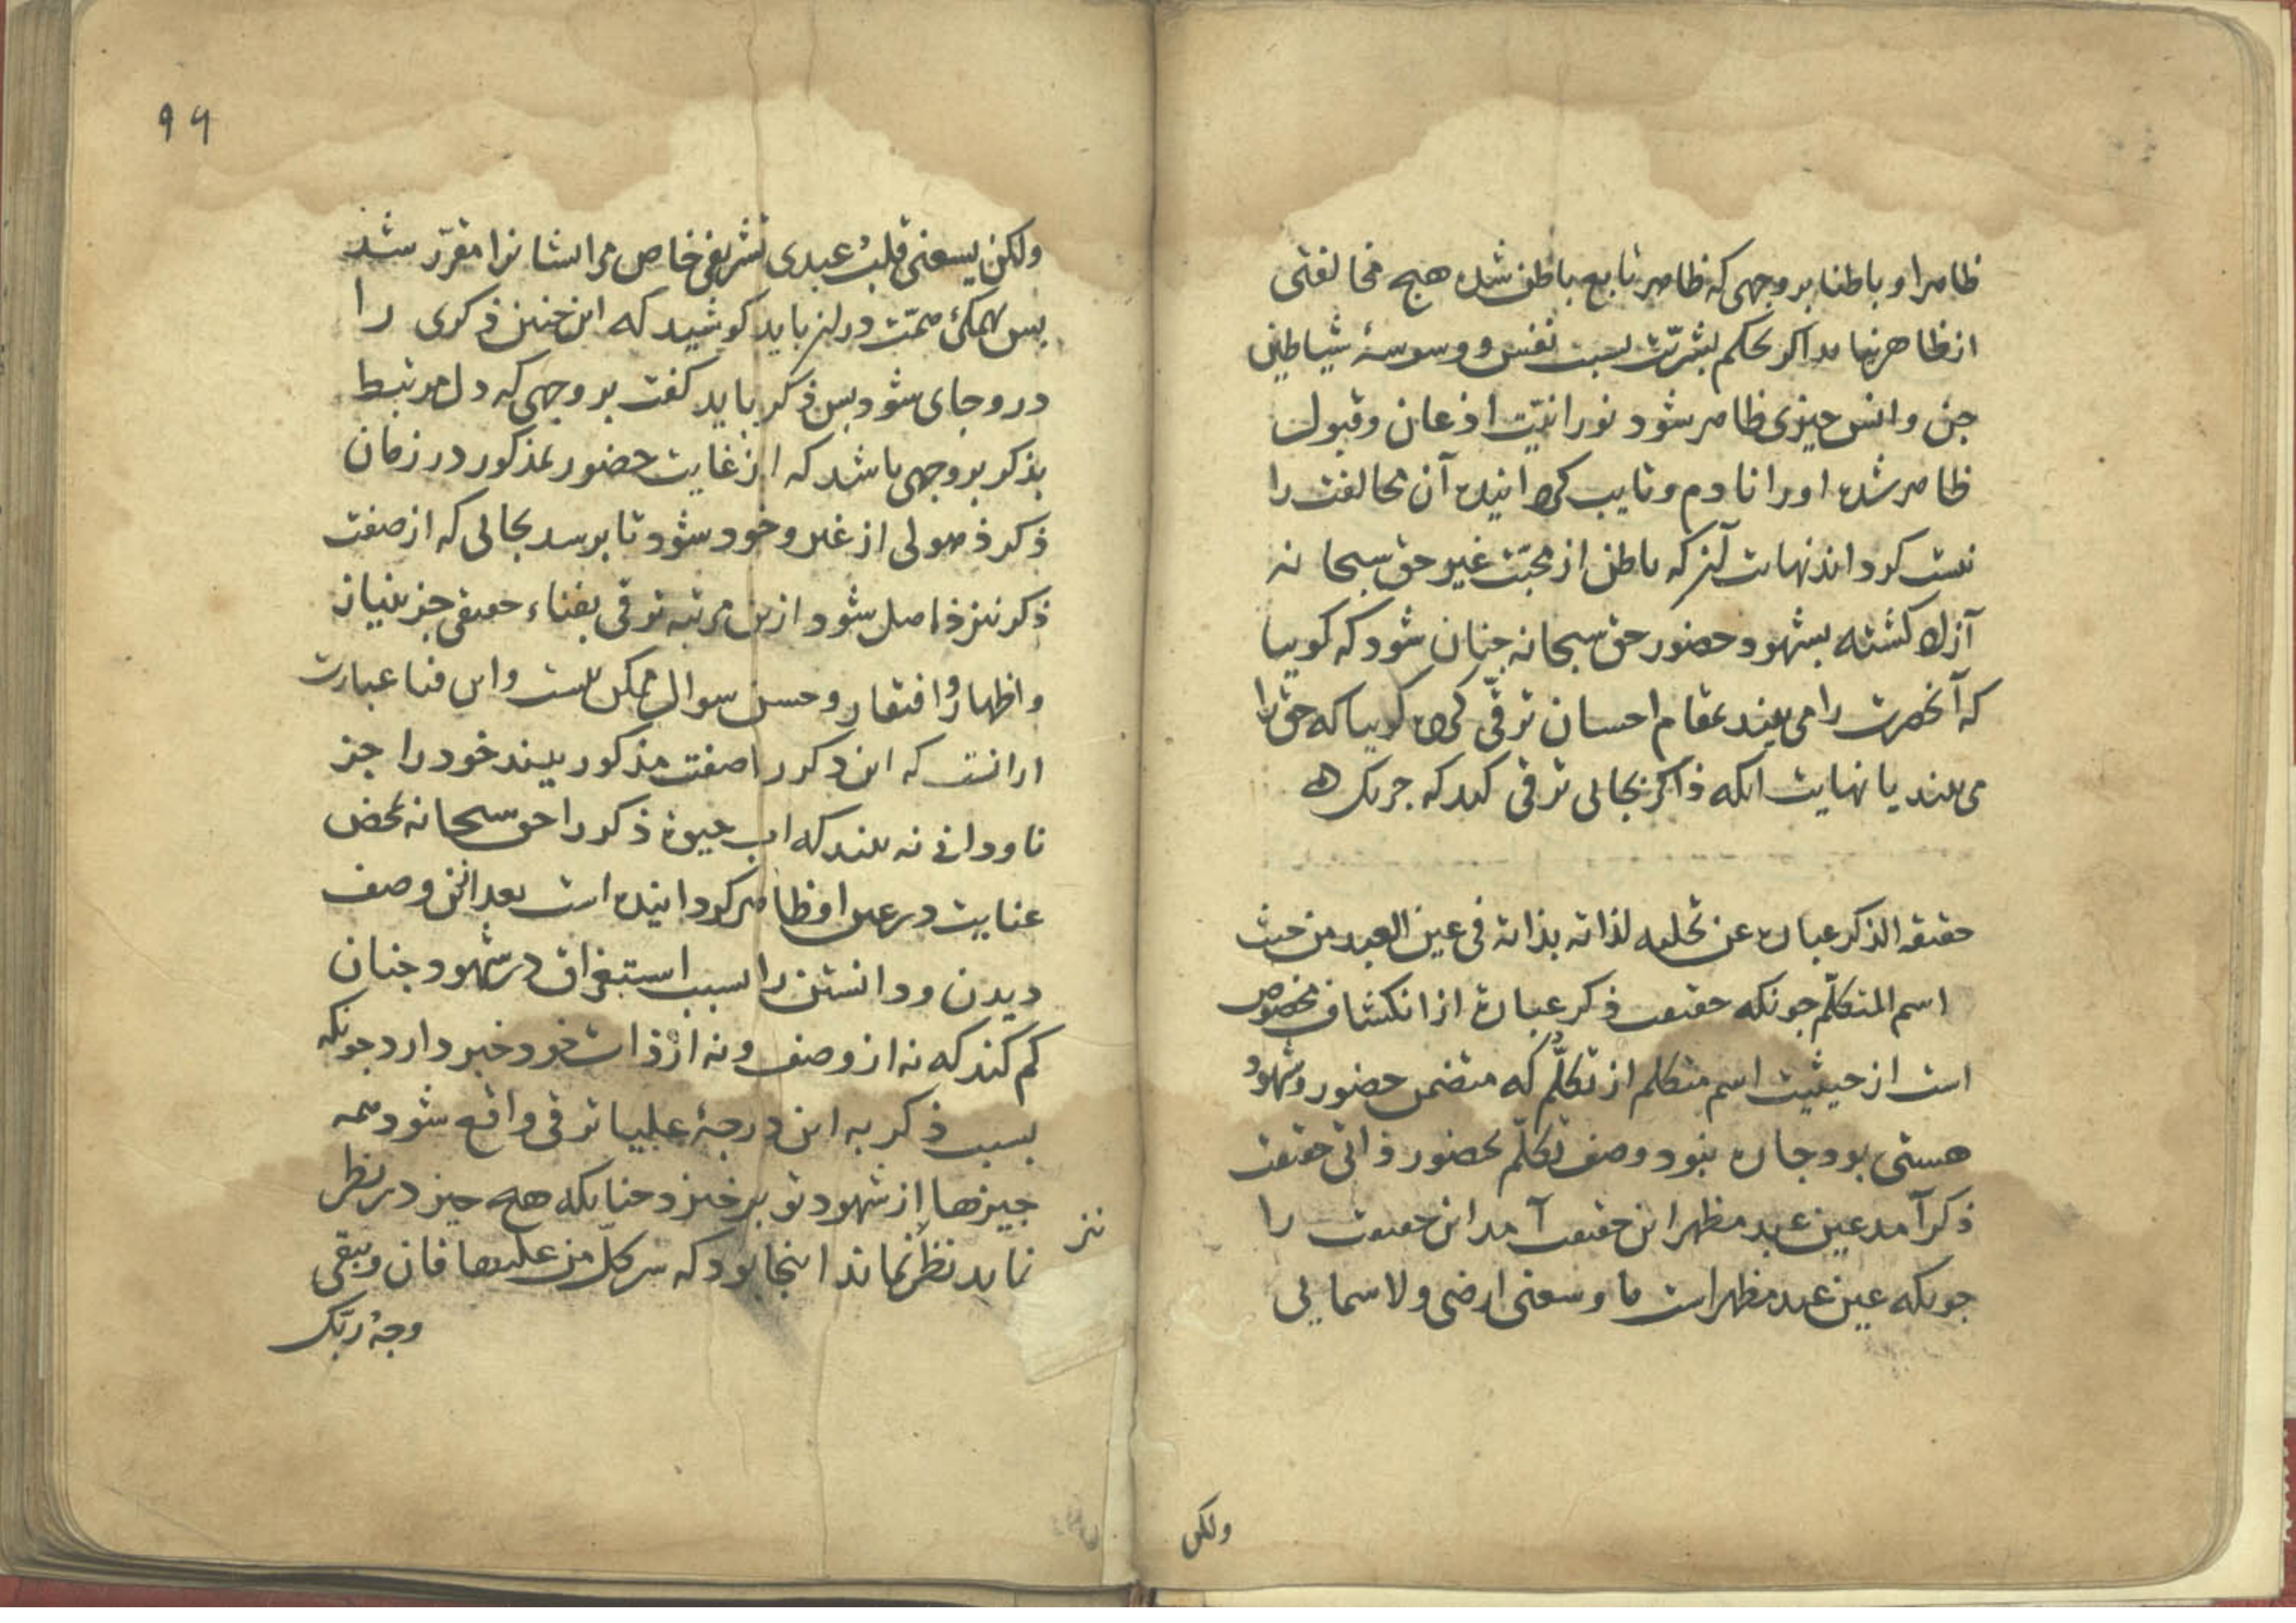 ظاهرا و باطنا بر وجهی که ظاهر تابع باطن شده هیچ مخالفتی
از ظاهر نیاید اگر بحکم بشریت بسبب نفس و وسوسۀ شیاطین
جن و انس چیزی ظاهر شود نورانیت اذعان و قبول
ظاهر شده او را نادم و تایب کردانیده آن مخالفت را
نیست کرداند نهایت آنکه باطن از محبت غیر حق سبحانه
آزاد کشته بشهود و حضور حق سبحانه چنان شود که کوییا
که آنحضرت را می بیند بمقام احسان ترقی کرده کوییا که حق را
می بیند یا نهایت آنکه ذاکر بحالی ترقی کند که جز یک
حقیقه الذکر عباره عن تجلیه لذاته بذاته فی عین العبد من حیث
اسم المتکلّم چونکه حقیقت ذکر عبارة از انکشاف مخصوص
است از حیثیت اسم متکلم از تکلّم که متضمن حضور و شهود
هستی بود چاره نبود وصف تکلّم بحضور ذاتی حقیقت
ذکر آمد عین عبد مظهر این حقیقت آمد این حقیقت را
چونکه عین عبد مظهر است ما وسعنی ارضی ولا سمایی
ولکن
۹۹
ولکن یسعنی قلبُ عبدی تشریفی خاص مر ایشانرا مقرّر شد
پس بهمکی همّت در آن باید کوشید که این چنین ذکری را
درو جای شود پس ذکر باید کفت بر وجهی که دل مرتبط
بذکر بر وجهی باشد که از غایت حضور بمذکور در زمان
ذکر ذهولی از غیر و خود شود تا برسد بحالی که از صفت
ذکر نیز ذاهل شود ازین مرتبه ترقی بفناء حقیقی جز بنیاز
و اظهار و افتقار و حسن سوال ممکن نیست و این فنا عبارت
از آنست که این ذکر را صفت مذکور بیند خود را جز
ناودانی نه بیند که آب حیوة ذکر را حق سبحانه بمحض
عنایت در عین او ظاهر کردانیده است بعد ازین وصف
دیدن و دانستن را بسبب استغراق در شهود چنان
کم کند که نه از وصف و نه از ذات خود خبر دارد چونکه
بسبب ذکر به این درجۀ علییا ترقی واقع شود همه
چیزها از شهود تو برخیزد چنانکه هیچ چیز در نظر
نیز
نماید نظر نماند اینجا بود که سر کلّ من علیها فان ویبقی
وجهُ ربّک